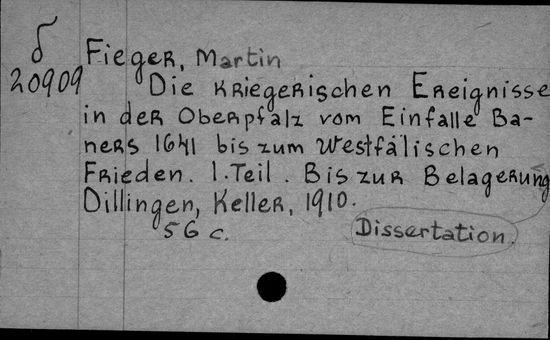 б
20909
Fieger, Martin
Die kriegerischen Ereignisse
in der Oberpfalz vom Einfalle Ba-
ners 1641 bis zum Westfälischen
Frieden. 1. Teil. Bis zur Belagerung
Dillingen, Keller, 1910.
56 c.
Dissertation.